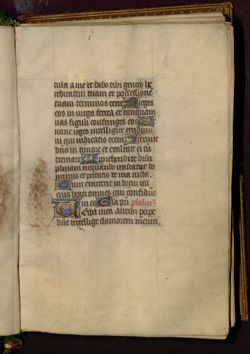 tula a me et dabo tibi gentes he
reditatem tuam et possessionem
tuam terminos terre Reges
eos in virga ferrea et tanquam
vas figuli confringes eos Et
nunc reges intelligite erudimi
ni qui iudicatis terram Servite
dno in timore et exultate ei cu
tremore Apprehendite disci
plinam nequando irascatur do
minus et pereatis de via iusta
Cum exarserit in brevi ira
eius beati omnes qui confidunt
in eo psalmus
Verba mea auribus percipe
dne intellige clamorem meum